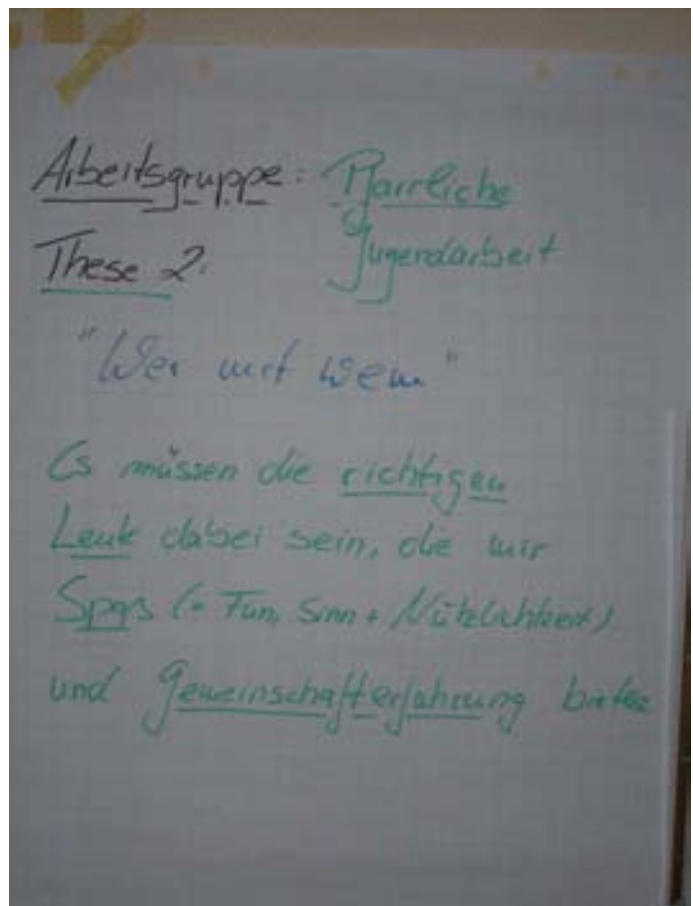 Arbeitsgruppe: Pfarrliche
These 2. Jugendarbeit
"Wer mit wem"
Es müssen die richtigen
Leute dabei sein, die mir
Spaß (= Fun, Sinn + Nützlichkeit)
und Gemeinschafterfahrung bieten